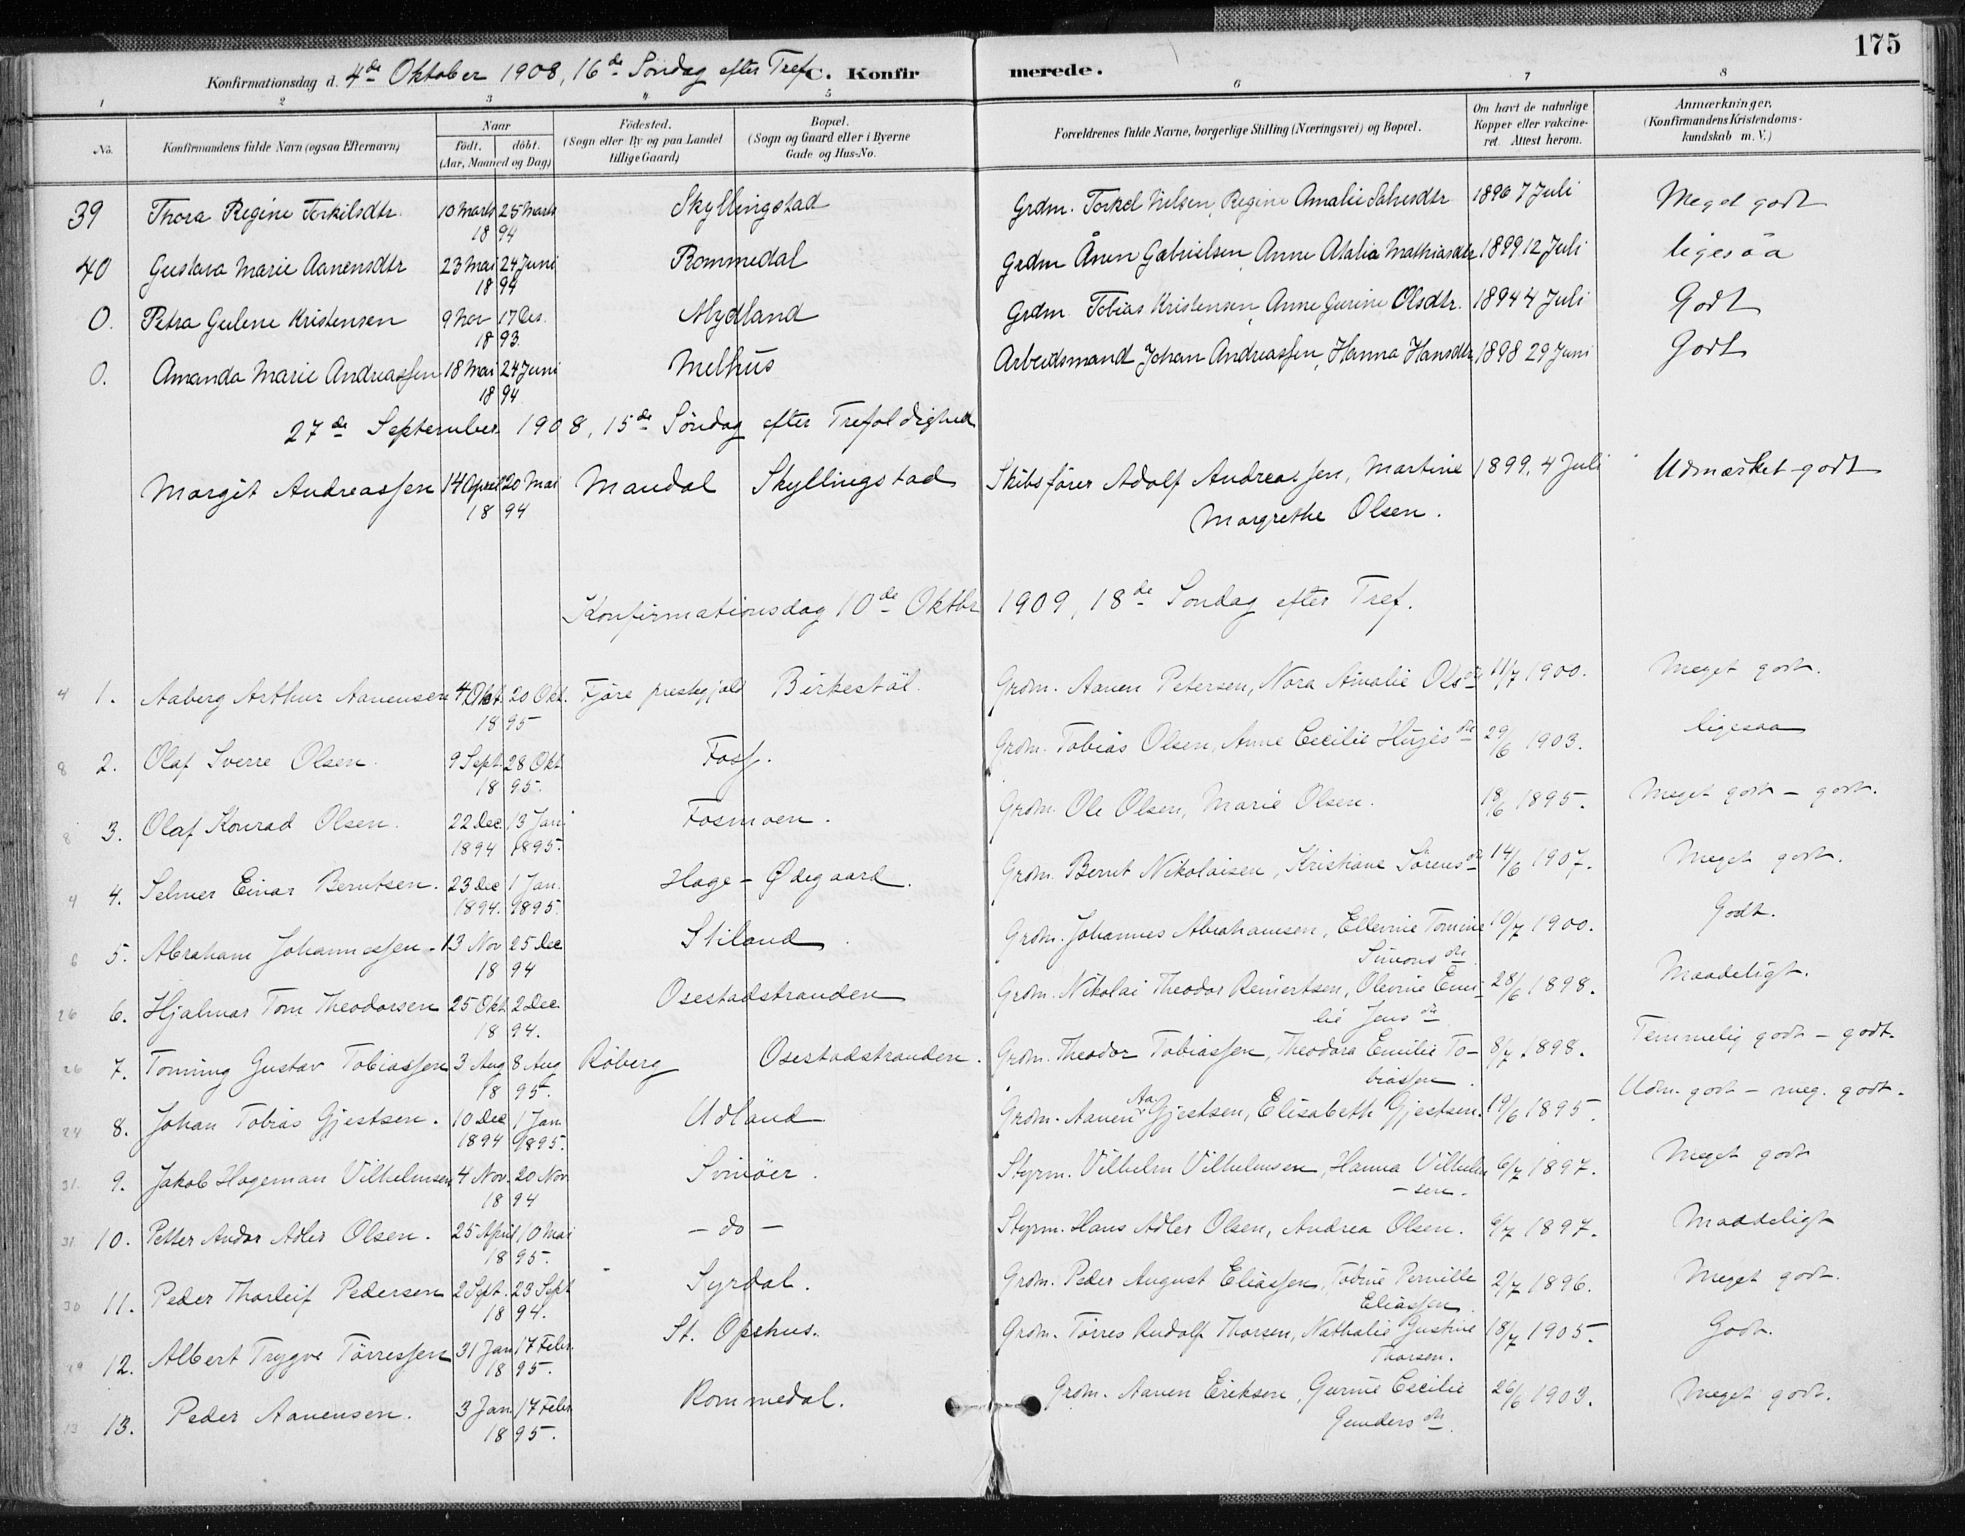 175
Konfirmationsdag d. 4de Oktober 1908, 16de Søndag efter Tref. C. Konfirmerede.
1 2 3 4 5 6 7 8
No. Konfirmandens fulde Navn (ogsaa Efternavn) Naar født. døbt. (Aar, Maaned og Dag) Fødested. (Sogn eller By og paa Landet tillige Gaard) Bopæl. (Sogn og Gaard eller i Byerne Gade og Hus-No. Forældrenes fulde Navne, borgerlige Stilling (Næringsvei) og Bopæl. Om havt de naturlige Kopper eller vaccineret. Attest herom. Anmærkninger, (Konfirmandens Kristendomskundskab m. V.)
39 Thora Regine Torkilsdtr. 10 Marts 25 Marts Skyllingstad Grdm. Torkel Nielsen, Regine Amalie 1896 7 Juli Meget godt
18 94
40 Gustava Marie Aanensdtr 23 Mai 24 Juni Rommedal Grdm Ånen Gabrielsen, Anne Atalia Mathiasdtr 1899 12 Juli ligesaa
18 94
0. Petra Gulene Kristensen 9 Nov 17 Des. Mydland Grdm. Tobias Kristensen, Anne Gurine Olsdtr. 1894 4 Juli Godt
18 93
0. Amanda Marie Andreassen 18 Mai 24 Juni Melhus Arbeidsmand Johan Andreassen, Hanna Hansdtr 1898 29 Juni Godt
18 94
27de September 1908, 15de Søndag efter Trefoldighed
Margit Andreassen 14 April 20 Mai Mandal Skyllingstad Skibsfører Adolf Andreassen, Martine 1899, 4 Juli Udmærket godt
18 94 Margrethe Olsen.
Konfirmationsdag 10de Oktbr 1909, 18de Søndag efter Tref.
4 1. Aaberg Arthur Aanensen 4 Okt. 20 Okt. Fjøre prestegjæld Birkestøl. Grdm. Aanen Petersen, Nora Amalie Olsdtr 11/7 1900. Meget godt.
18 95
8 2. Olaf Sverre Olsen. 9 Sept. 28 Okt Foss. Grdm. Tobias Olsen, Anne Cecilie 29/6 1903. ligesaa
18 95.
8 3. Olaf Konrad Olsen. 22 Dec. 13 Jan. Fosmoen. Grdm. Ole Olsen, Marie Olsen. 18/6 1895. Meget godt - godt.
1894 1895.
4 4. Selmer Einar Berntsen. 23 Dec 1 Jan. Hage-Ødegaard. Grdm. Bernt Nikolaisen, Kristiane Sørensdtr 14/6 1907. Meget godt.
1894. 1895.
6 5. Abraham Johannessen. 13 Nov 25 Dec Stiland. Grdm. Johannes Abrahamsen, Ellevine Tomine 19/7 1900. Godt.
18 94 Simonsdtr.
26 6. Hjalmar Tom Theodorsen 25 Okt. 2 Dec. Osestadstranden Grdm. Nikolai Theodor Reinertsen, Olevine Emi- 28/6 1898. Maadeligt.
18 94. lie Jensdtr
26 7. Tønning Gustav Tobiassen 3 Aug 8 Aug Røberg Osestadstranden. Grdm. Theodor Tobiassen, Theodora Emilie To- 8/7 1898. Temmelig godt - godt.
18 95. biassen.
24 8. Johan Tobias Gjestsen. 10 Dec 1 Jan. Udland Grdm. Aanen Aa Gjestsen, Elisabeth Gjestsen. 19/6 1895. Udm. godt - meg. godt.
1894 1895.
31. 9. Jakob Hageman Vilhelmsen 4 Nov. 20 Nov Svinøer. Styrm. Vilhelm Vilhelmsen, Hanna Vilhelm 6/7 1897. Meget godt
18 94 -sen.
31 10. Petter Andor Adler Olsen. 25 April 10 Mai - do - Styrm. Hans Adler Olsen, Andrea Olsen. 6/7 1897. Maadeligt
18 95.
30 11. Peder Thorleif Pedersen 2 Sept. 23 Sept Syrdal. Grdm. Peder August Eliassen, Tobine Pernille 2/7 1896. Meget godt.
18 94. Eliassen.
29 12. Albert Trygve Tørressen 31 Jan 17 Febr. St. Opshus. Grdm. Tørres Rudolf Thorsen, Nathalie Gustine 18/7 1905. Godt.
18 95. Thorsen.
13 13. Peder Aanensen. 3 Jan. 17 Febr. Rommedal. Grdm. Aanen Eriksen, Gurine Cecilie 26/6 1903. Meget godt.
18 95. Gundersdtr.